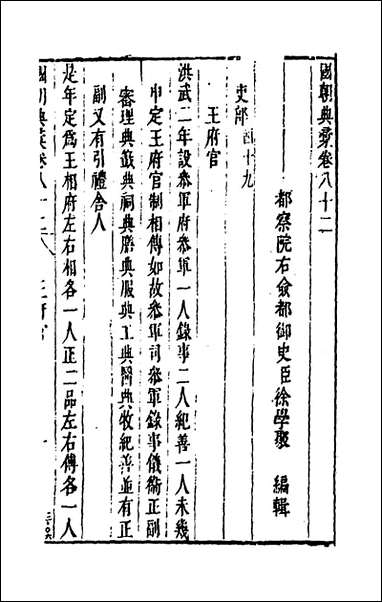 國朝典彚卷八十二
都察院右僉都御史臣徐學聚 編輯
吏部四十九
王府官
洪武二年設叅軍府叅軍一人錄事二人紀善一人未幾
申定王府官制相傳如故叅軍司叅軍錄事儀衛正副
審理典籤典祠典膳典服典工典醫典牧紀善並有正
副又有引禮舍人
是年定爲王相府左右相各一人正二品左右傅各一人
國朝典彚卷八十二 王府官 一
三一〇六